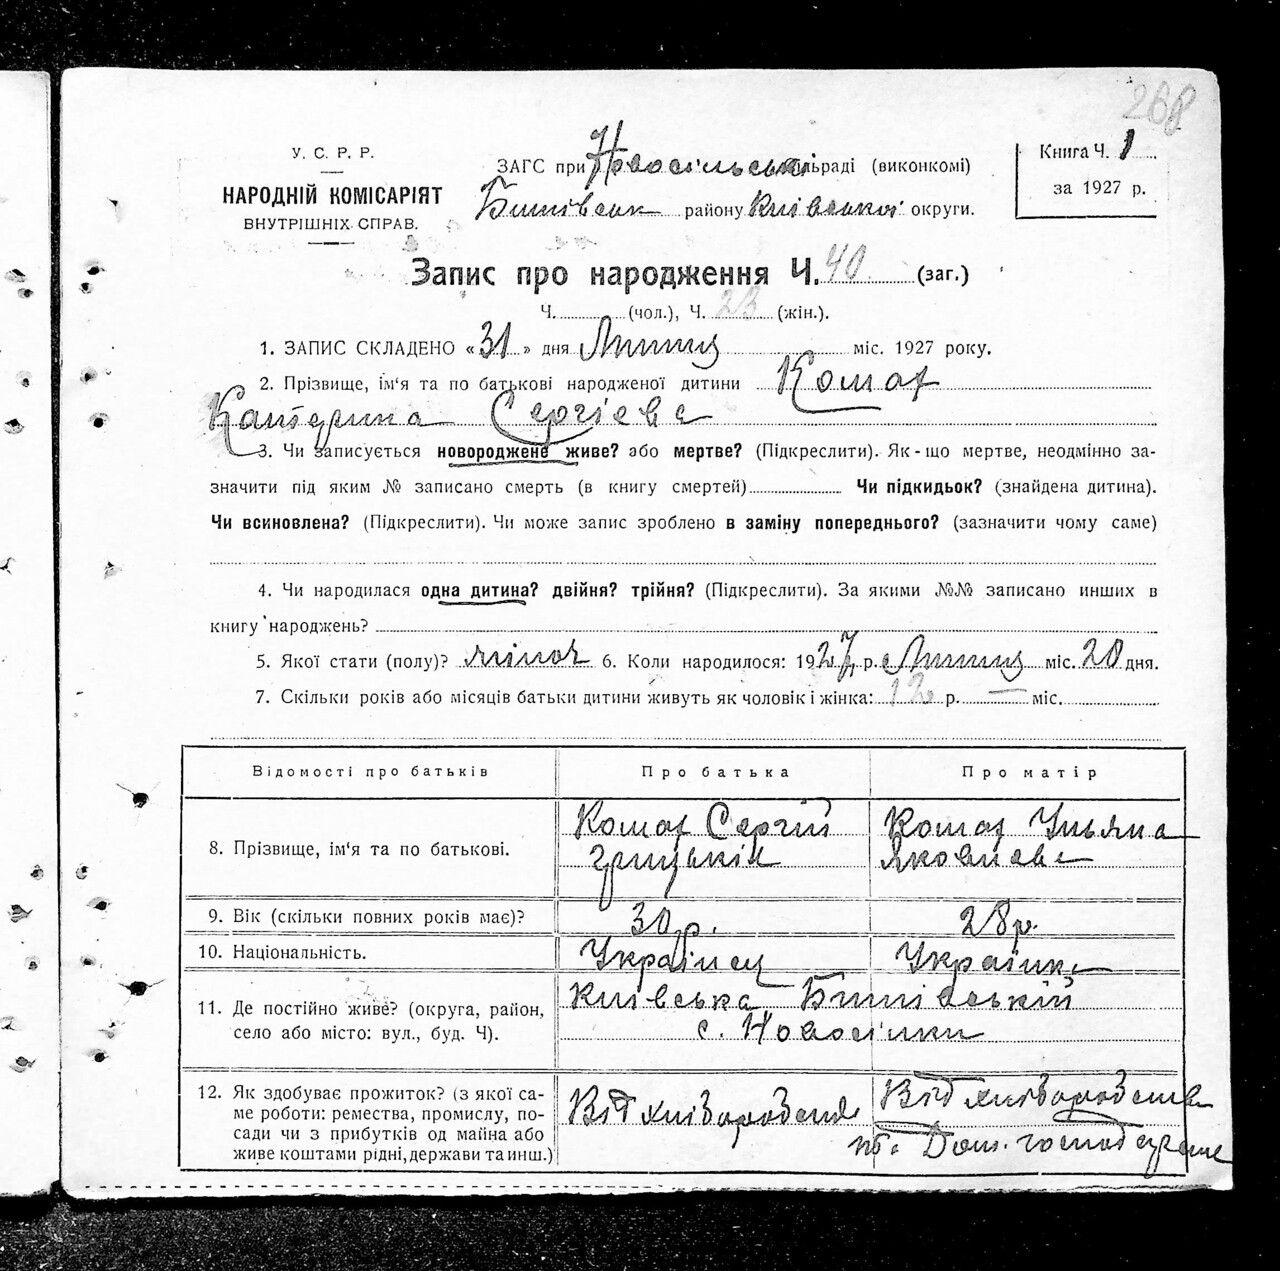 268
У. С. Р. Р.
НАРОДНІЙ КОМІСАРІЯТ
ВНУТРІШНІХ СПРАВ.
ЗАГС при Новосільській сільраді (виконкомі)
Бишівськ району Київської округи.
Книга Ч. 1
за 1927 р.
Запис про народження Ч. 40 (заг.)
Ч. (чол.), Ч. 23 (жін.).
1. ЗАПИС СКЛАДЕНО «31» дня Липня міс. 1927 року.
2. Прізвище, ім'я та по батькові народженої дитини Комар
Катерина Сергієва
3. Чи записується новороджене живе? або мертве? (Підкреслити). Як-що мертве, неодмінно за-
значити під яким № записано смерть (в книгу смертей) Чи підкидьок? (знайдена дитина).
Чи всиновлена? (Підкреслити). Чи може запис зроблено в заміну попереднього? (зазначити чому саме)
4. Чи народилася одна дитина? двійня? трійня? (Підкреслити). За якими №№ записано инших в
книгу народжень?
5. Якої стати (полу)? жіноч 6. Коли народилося: 1927 р. Липня міс. 28 дня.
7. Скільки років або місяців батьки дитини живуть як чоловік і жінка: 12 р. — міс.
Відомості про батьків Про батька Про матір
8. Прізвище, ім'я та по батькові. Комар Сергій Комар Ульяна
Грицьків Яковлева
9. Вік (скільки повних років має)? 30 р. 28 р.
10. Національність. Українец Українка
11. Де постійно живе? (округа, район, Київська Бишівський
село або місто: вул., буд. Ч). с. Новосілки
12. Як здобуває прожиток? (з якої са-
ме роботи: ремества, промислу, по-
сади чи з прибутків од майна або
живе коштами рідні, держави та инш.)
Від хліборобства
Від хліборобства
та Дом. господарства